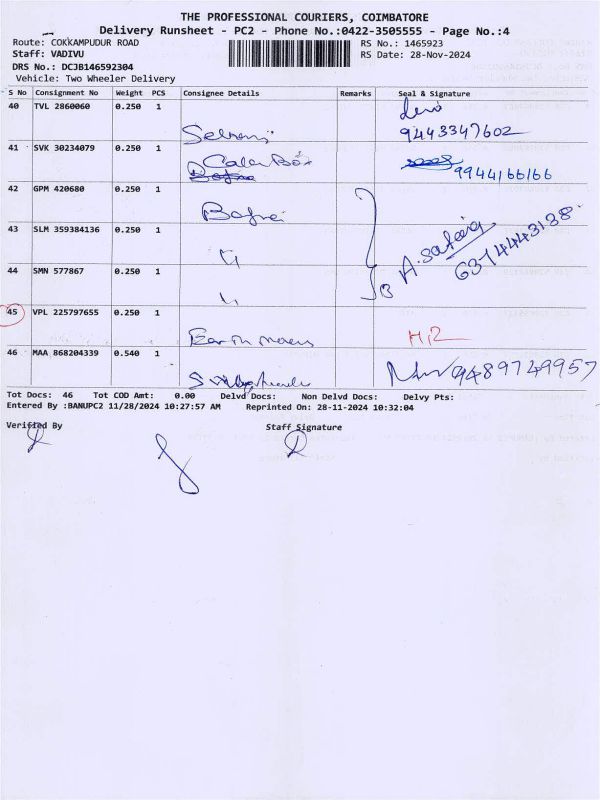 THE PROFESSIONAL COURIERS, COIMBATORE
Delivery Runsheet - PC2 - Phone No.:0422-3505555 - Page No.:4
Route: COKKAMPUDUR ROAD
RS No.: 1465923
Staff: VADIVU
RS Date: 28-Nov-2024
DRS No.: DCJB146592304
Vehicle: Two Wheeler Delivery
S No Consignment No Weight PCS Consignee Details Remarks Seal & Signature
40 TVL 2860060 0.250 1
Selvami 9443347602
41 SVK 30234079 0.250 1
9944166166
42 GPM 420680 0.250 1
43 SLM 359384136 0.250 1
A. Sathiq
6374443138
44 SMN 577867 0.250 1
3
45 VPL 225797655 0.250 1
46 MAA 868204339 0.540 1
9489749957
Tot Docs: 46 Tot COD Amt: 0.00 Delvd Docs: Non Delvd Docs: Delvy Pts:
Entered By :BANUPC2 11/28/2024 10:27:57 AM Reprinted On: 28-11-2024 10:32:04
Verified By Staff Signature